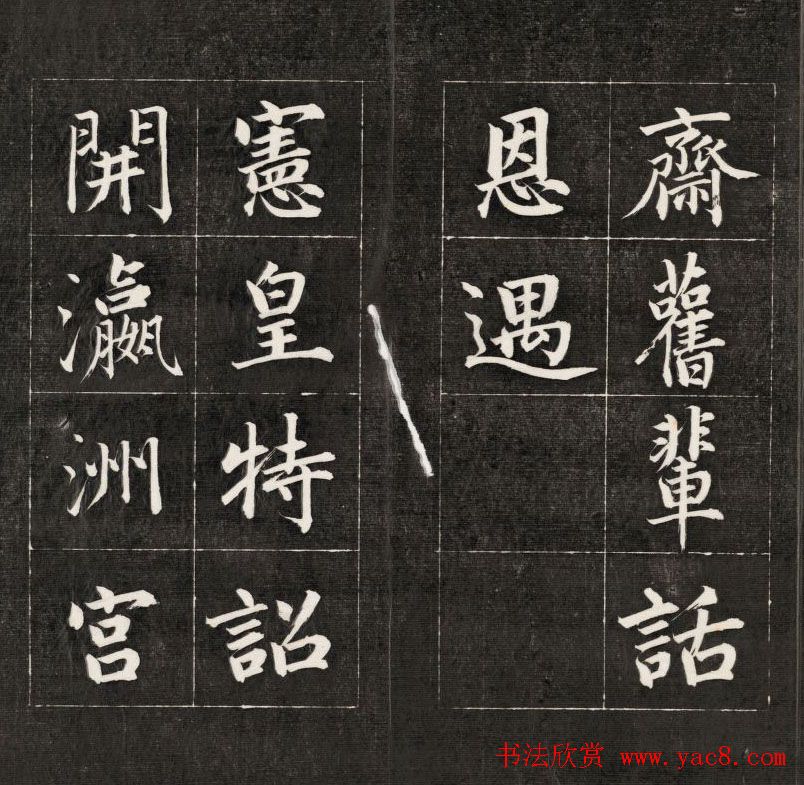 齋舊輩話
恩遇
憲皇特詔
開瀛洲宮
书法欣赏 www.yac8.com